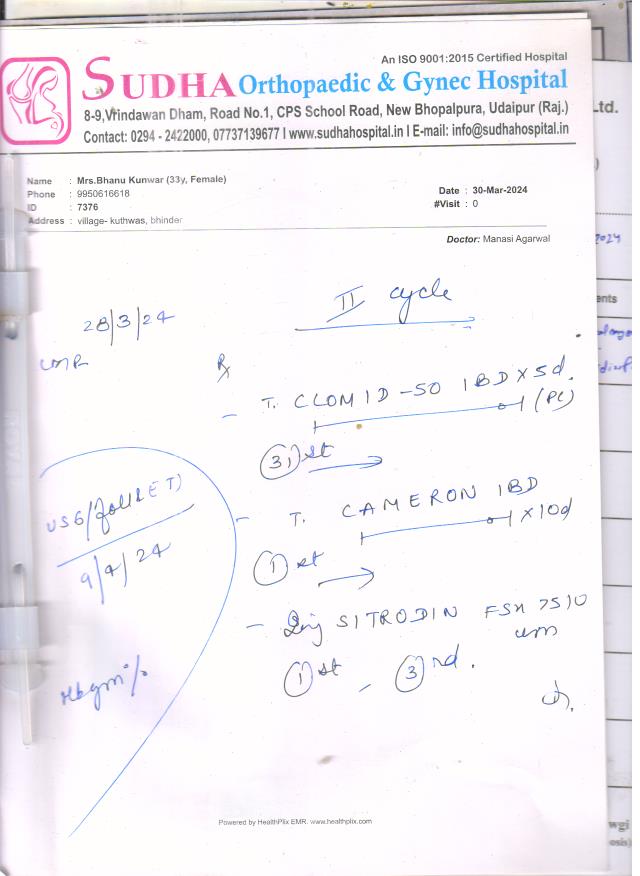 An ISO 9001:2015 Certified Hospital
SUDHA Orthopaedic & Gynec Hospital
8-9, Vrindawan Dham, Road No.1, CPS School Road, New Bhopalpura, Udaipur (Raj.)
Contact: 0294 - 2422000, 07737139677 I www.sudhahospital.in I E-mail: info@sudhahospital.in
Name : Mrs.Bhanu Kunwar (33y, Female)
Phone : 9950616618
ID : 7376
Address : village- kuthwas, bhinder
Date : 30-Mar-2024
#Visit : 0
Doctor: Manasi Agarwal
II cycle
28/3/24
LMP
Rx
- T. CLOMID-50 1BD X 5d.
(PC)
3 st
USG/
9/4/24
- T. CAMERON 1BD
X10d
1 st
- Inj SITRODIN FSH 75IU
1 st - 3 rd.
Powered by HealthPlix EMR. www.healthplix.com
Ltd.
2024
ents
wgi
osis)